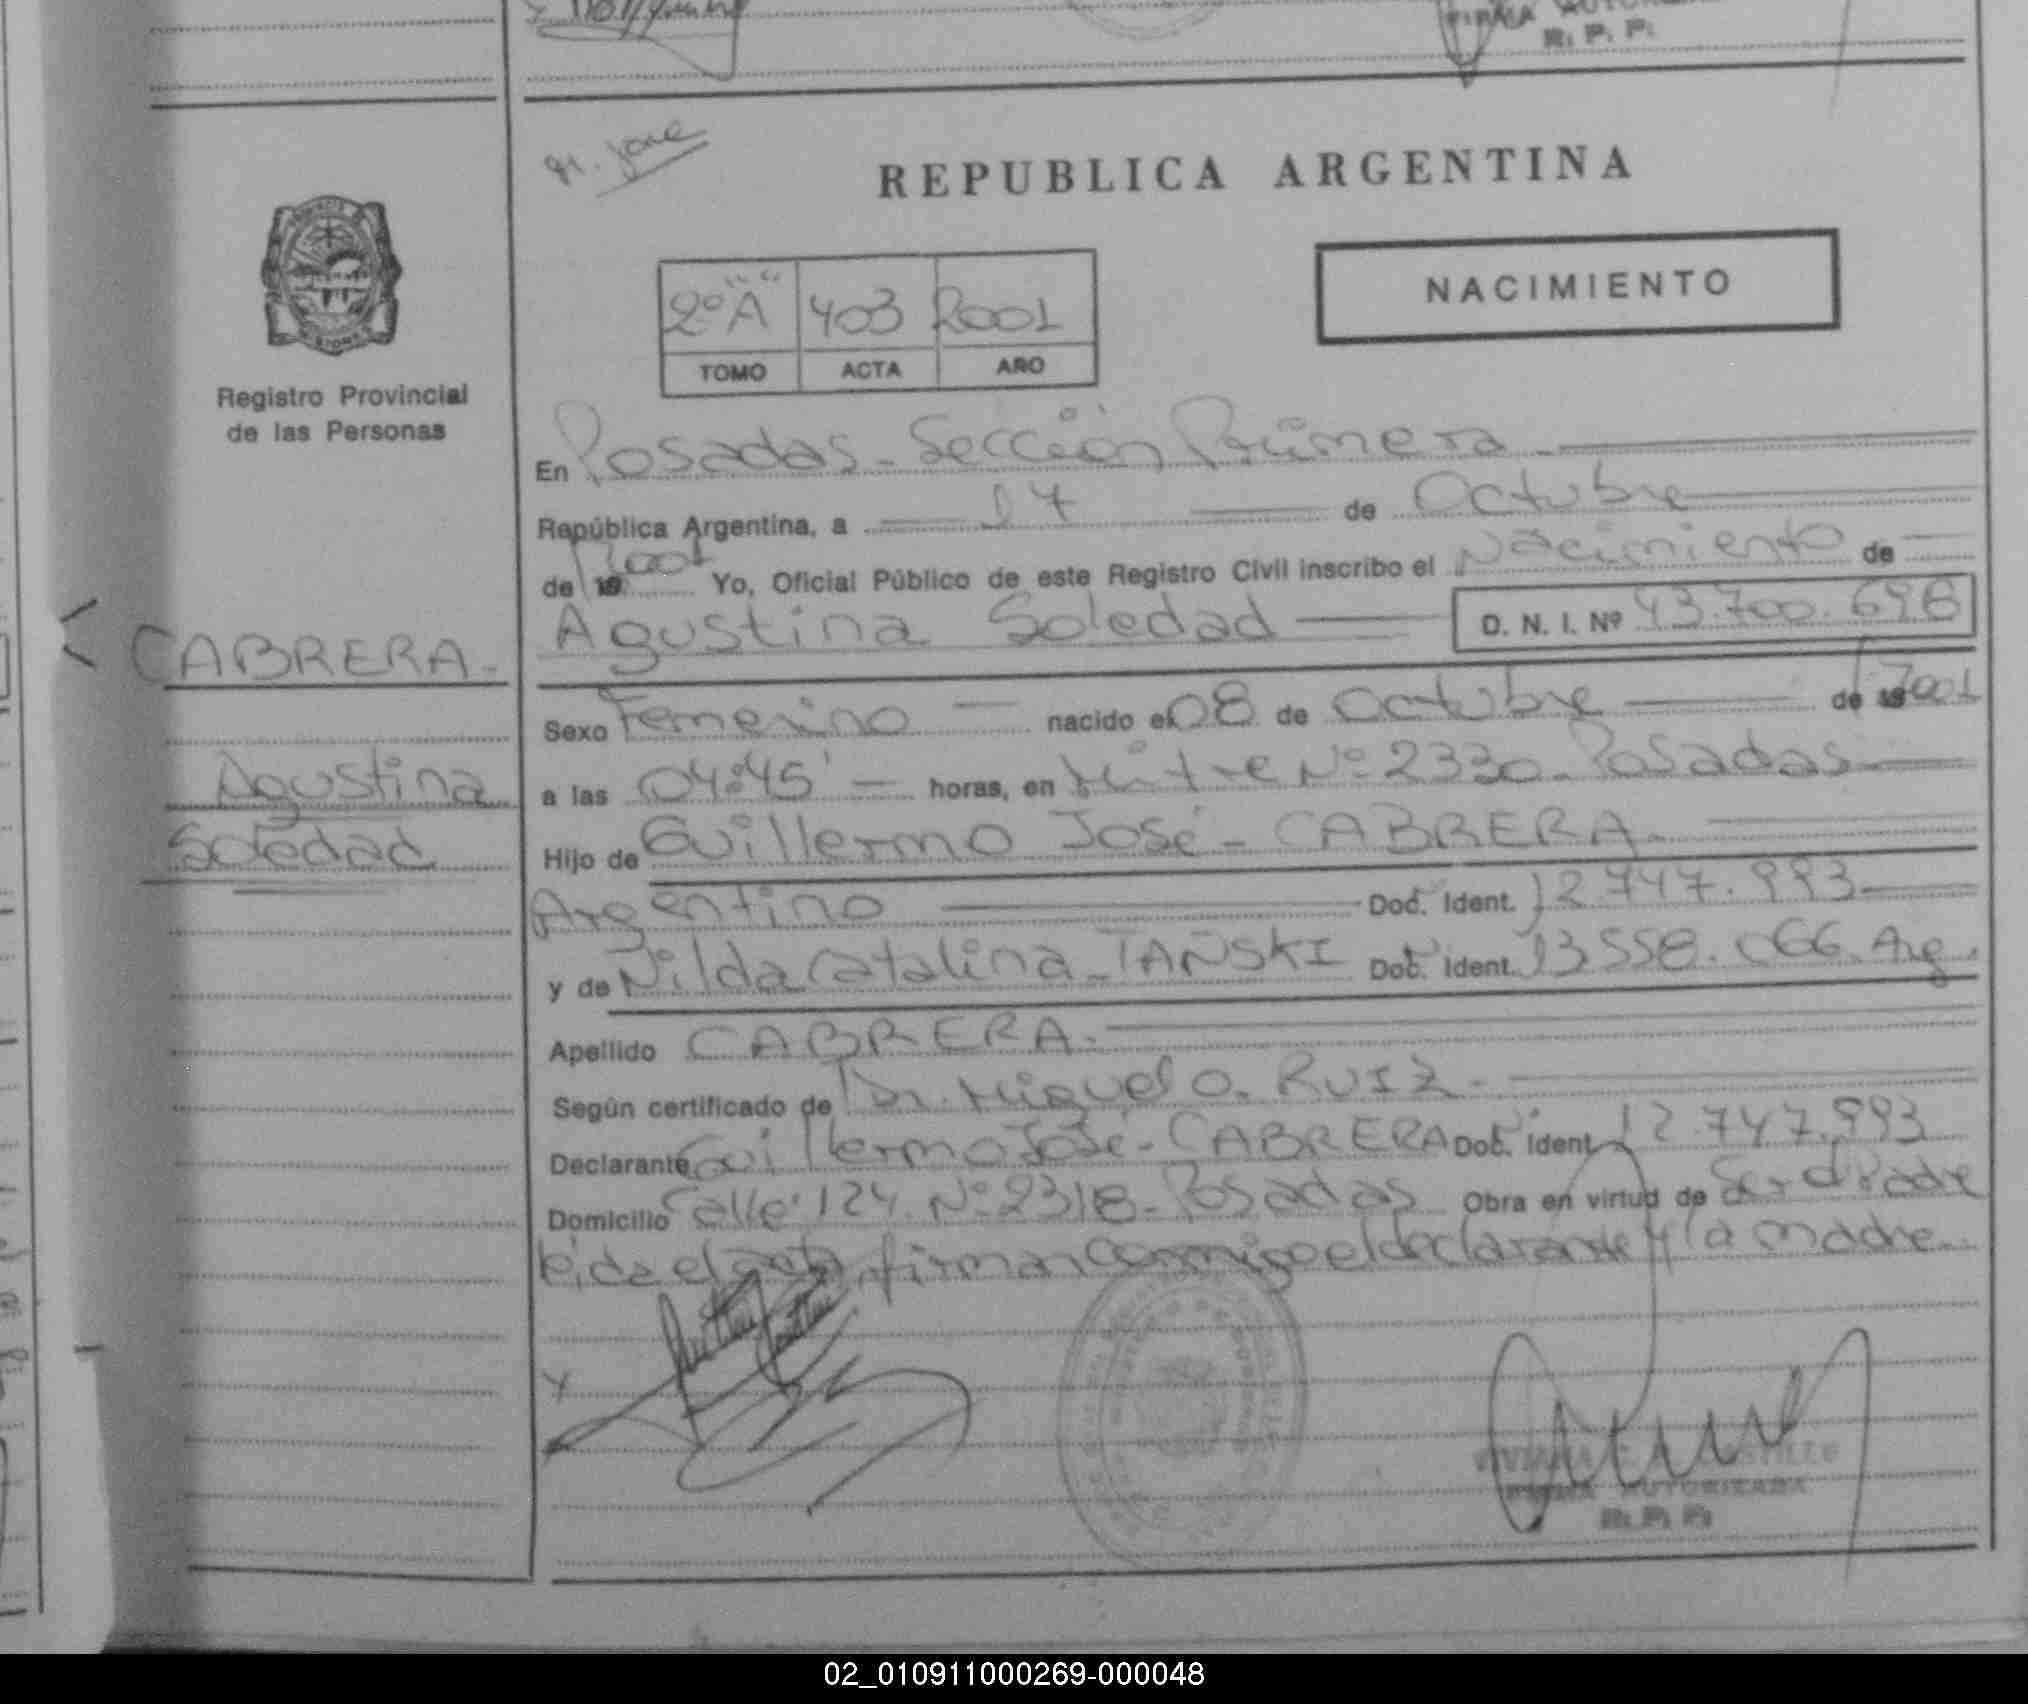 FIRMA
R. P. P.
REPUBLICA ARGENTINA
NACIMIENTO
2º "A" 403 2001
TOMO ACTA AÑO
Registro Provincial
de las Personas
En Posadas - Sección Primera
República Argentina, a 17 de Octubre
de 19 2001 Yo, Oficial Público de este Registro Civil inscribo el Nacimiento de
Agustina Soledad D. N. I. Nº 43.700.698
CABRERA -
Agustina
Soledad
Sexo Femenino nacido el 08 de Octubre de 19 2001
a las 04:45' horas, en Mitre Nº 2330 - Posadas
Hijo de Guillermo José - CABRERA -
Argentino Doc. Ident. 12.747.993
y de Nilda Catalina - TAÑSKI Doc. Ident. 13.558.066. Arg.
Apellido CABRERA -
Según certificado de Dr. Miguel O. RUIZ -
Declarante Guillermo José - CABRERA Doc. Ident. 12.747.993
Domicilio Calle 124 Nº 2318 - Posadas Obra en virtud de Ser el Padre
leída el acta, firman conmigo el declarante y la madre
FIRMA AUTORIZADA
R. P. P.
02_010911000269-000048